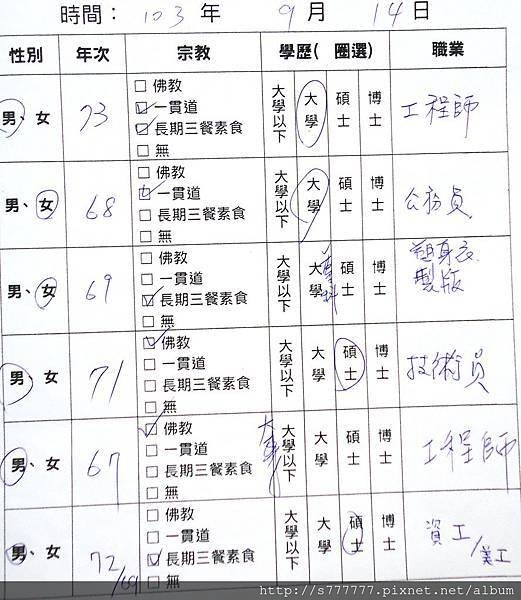 時間： 103 年 9 月 14 日
性別 年次 宗教 學歷( 圈選) 職業
男、女 73 □ 佛教 大學以下 大學 碩士 博士 工程師
□ 一貫道
□ 長期三餐素食
□ 無
男、女 68 □ 佛教 大學以下 大學 碩士 博士 公務員
□ 一貫道
□ 長期三餐素食
□ 無
男、女 69 □ 佛教 大學以下 大學 專科 碩士 博士 塑身衣
□ 一貫道 製版
□ 長期三餐素食
□ 無
男、女 71 □ 佛教 大學以下 大學 碩士 博士 技術員
□ 一貫道
□ 長期三餐素食
□ 無
男、女 67 □ 佛教 大學以下 大學 碩士 博士 工程師
□ 一貫道
□ 長期三餐素食
□ 無
男、女 72/69 □ 佛教 大學以下 大學 碩士 博士 資工/美工
□ 一貫道
□ 長期三餐素食
□ 無
http://s777777.pixnet.net/album